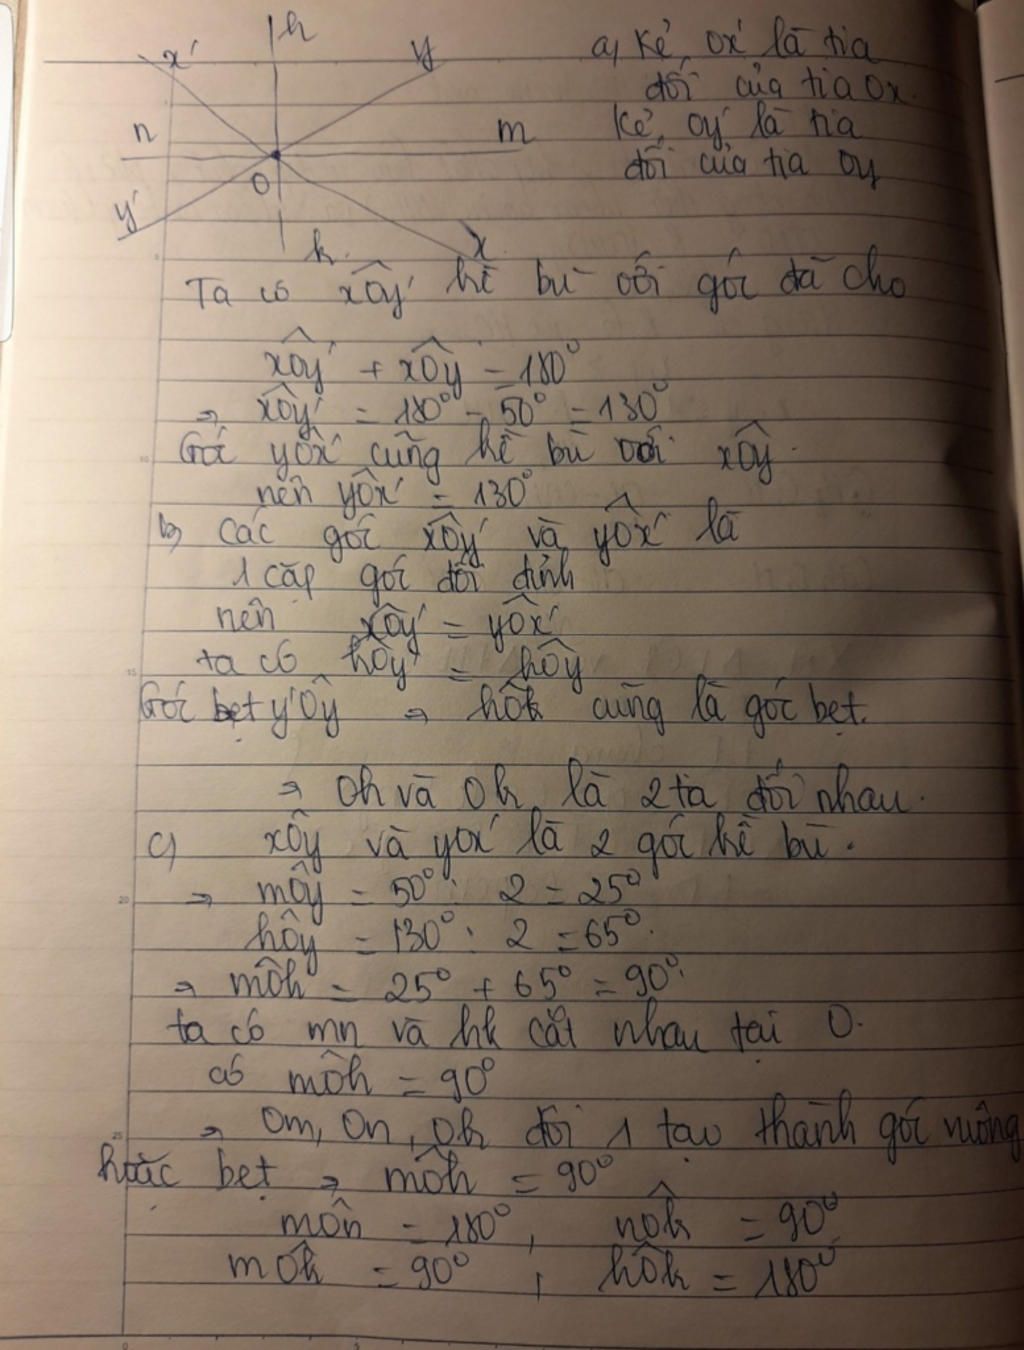 h
x'
y
a) Kẻ ox' là tia
đối của tia Ox.
n
m
Kẻ oy' là tia
đối của tia oy
O
y'
k
x
Ta có xôy' kề bù với góc đã cho
xôy' + xôy = 180°
=> xôy' = 180° - 50° = 130°
Góc yôx' cũng kề bù với xôy.
nên yôx' = 130°
b) Các góc xôy' và yôx' là
1 cặp góc đối đỉnh
nên xôy' = yôx'
ta có hôy' = hôy
Góc bẹt y'Oy => hôk cũng là góc bẹt.
=> Oh và Ok là 2 ta đối nhau.
c) xôy và yox' là 2 góc kề bù.
=> môy = 50° : 2 = 25°
hôy = 130° : 2 = 65°.
=> môh = 25° + 65° = 90°.
ta có mn và hk cắt nhau tại O.
có môh = 90°
=> Om, On, Ok đôi 1 tạo thành góc vuông
hoặc bẹt => môh = 90°
môn = 180°, nôk = 90°
môk = 90° , hôk = 180°